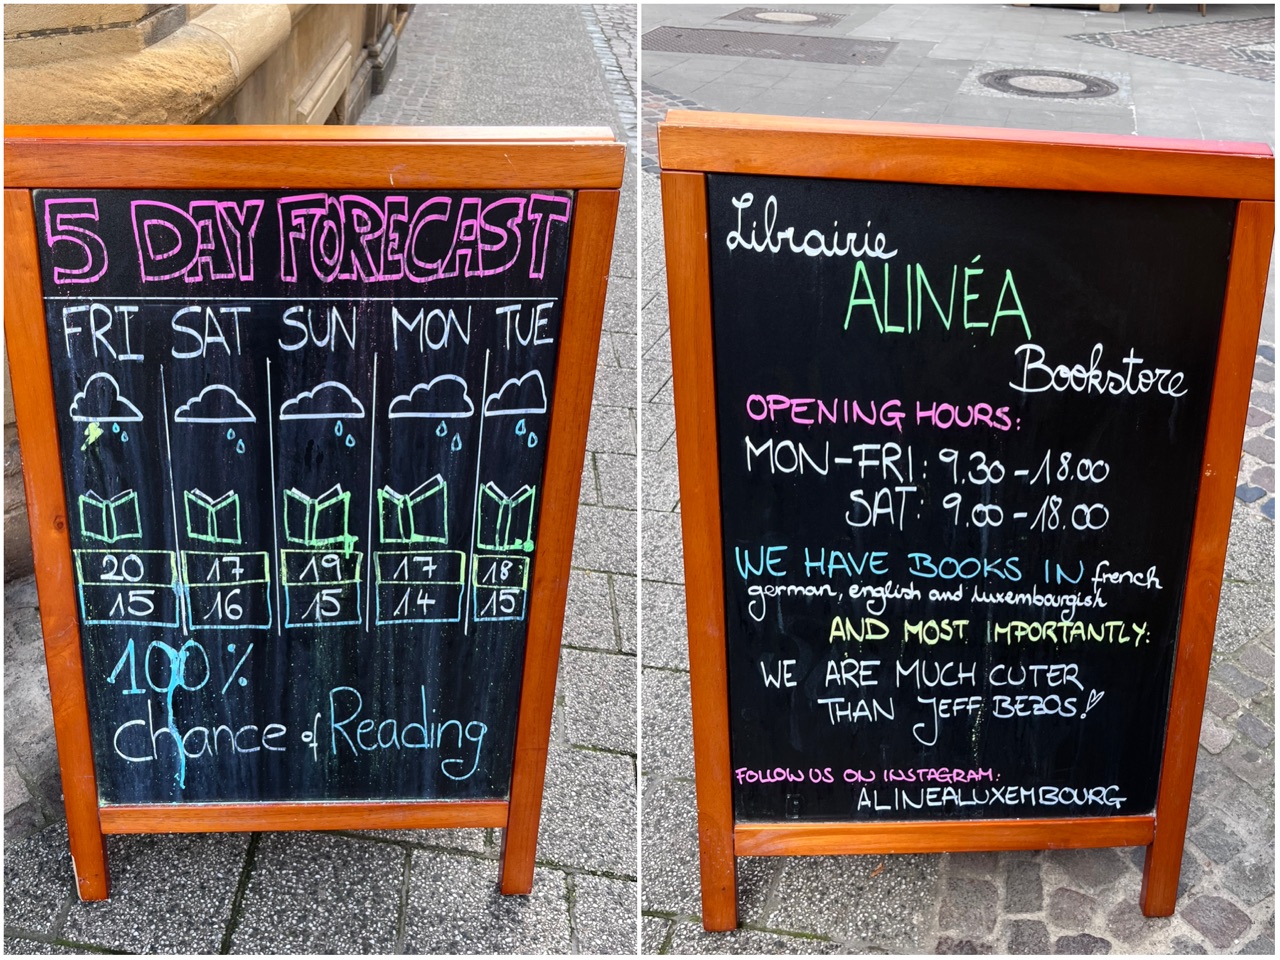 5 DAY FORECAST
FRI SAT SUN MON TUE
20 17 19 17 18
15 16 15 14 15
100%
chance of Reading
Librairie
ALINÉA
Bookstore
OPENING HOURS:
MON-FRI: 9.30-18.00
SAT: 9.00-18.00
WE HAVE BOOKS IN french
german, english and luxembourgish
AND MOST IMPORTANTLY:
WE ARE MUCH CUTER
THAN JEFF BEZOS!
FOLLOW US ON INSTAGRAM:
ALINEALUXEMBOURG